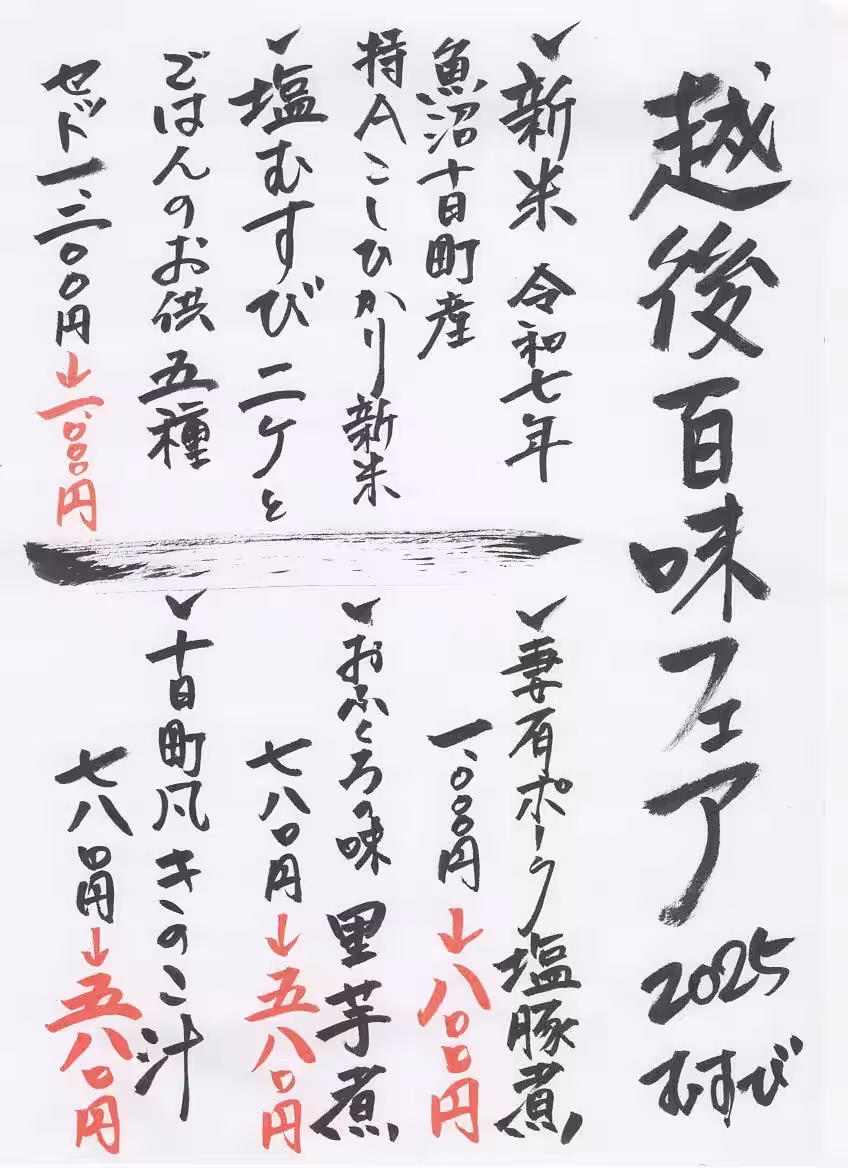 越後百味フェア 2025 むすび
新米 令和七年
魚沼十日町産
特Aこしひかり新米
塩むすび 二ケと
ごはんのお供 五種
セット 一、三〇〇円→一、〇〇〇円
妻有ポーク塩豚煮
一、〇〇〇円→八〇〇円
おふくろの味 里芋煮
七八〇円→五八〇円
十日町風 きのこ汁
七八〇円→五八〇円